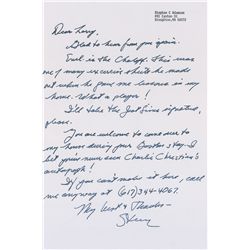 Stephen C Adamson
Stoughton, MA 02072
Dear Larry,
Glad to hear from you again.
Earl is the Chaloff. This was
one of many exercise sheets he made
out when he gave me lessons in my
home. What a player!
I'll take the Jeff Sims signature,
please.
You are welcome to come over to
my house during your Boston stay. I
bet you've never seen Charlie Christian's
autograph!
If you can't make it sure, call
me anyway at (617) 344-4067.
My best & Thanks-
Steve